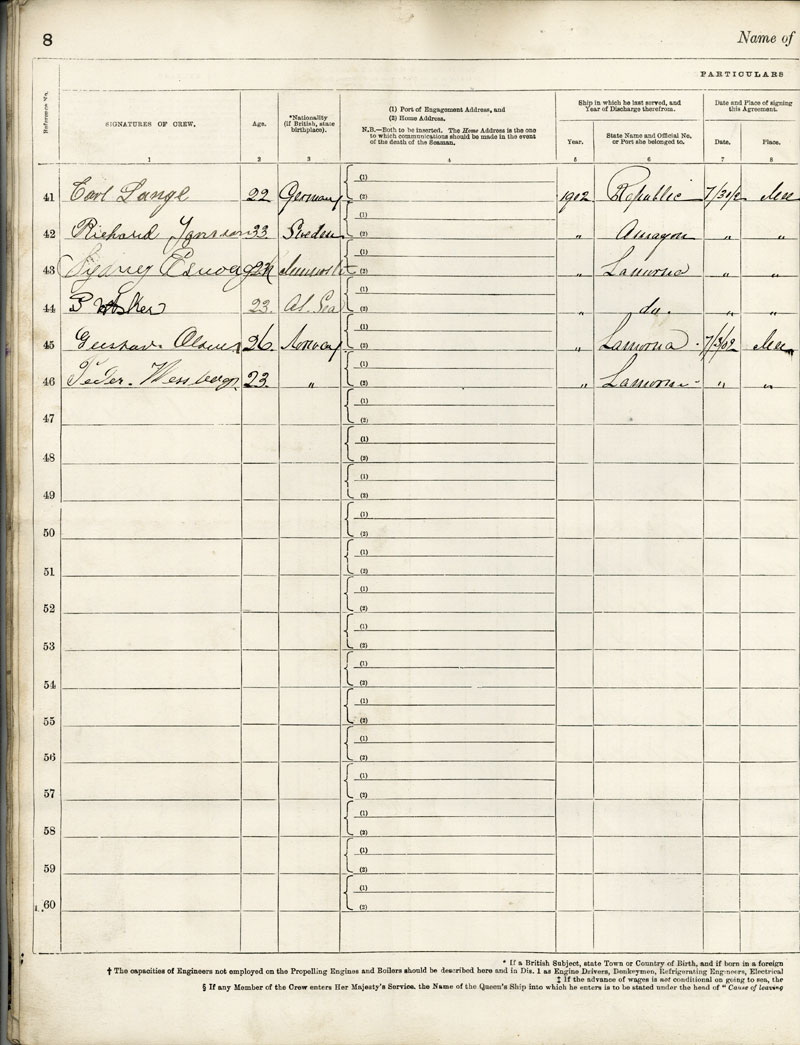 8 Name of
PARTICULARS
Reference No.
SIGNATURES OF CREW.
Age.
*Nationality
(if British, state
birthplace).
(1) Port of Engagement Address, and
(2) Home Address.
N.B.—Both to be inserted. The Home Address is the one
to which communications should be made in the event
of the death of the Seaman.
Ship in which he last served, and
Year of Discharge therefrom.
Year.
State Name and Official No.
or Port she belonged to.
Date and Place of signing
this Agreement.
Date. Place.
1 2 3 4 5 6 7 8
41 Carl Lange 22 Germany (1) (2) 1902 Republic
42 Richard 33 Sweden (1) (2) " Amazon " "
43 Sydney (1) (2) " Lamorna " "
44 23. At Sea (1) (2) " do. " "
45 Gustav. Olsen 26. Norway (1) (2) " Lamorna
46 Peder. 23. " (1) (2) " Lamorna " "
47 (1) (2)
48 (1) (2)
49 (1) (2)
50 (1) (2)
51 (1) (2)
52 (1) (2)
53 (1) (2)
54 (1) (2)
55 (1) (2)
56 (1) (2)
57 (1) (2)
58 (1) (2)
59 (1) (2)
60 (1) (2)
* If a British Subject, state Town or Country of Birth, and if born in a foreign
† The capacities of Engineers not employed on the Propelling Engines and Boilers should be described here and in Dis. 1 as Engine Drivers, Donkeymen, Refrigerating Engineers, Electrical
‡ If the advance of wages is not conditional on going to sea, the
§ If any Member of the Crew enters Her Majesty's Service, the Name of the Queen's Ship into which he enters is to be stated under the head of "Cause of leaving